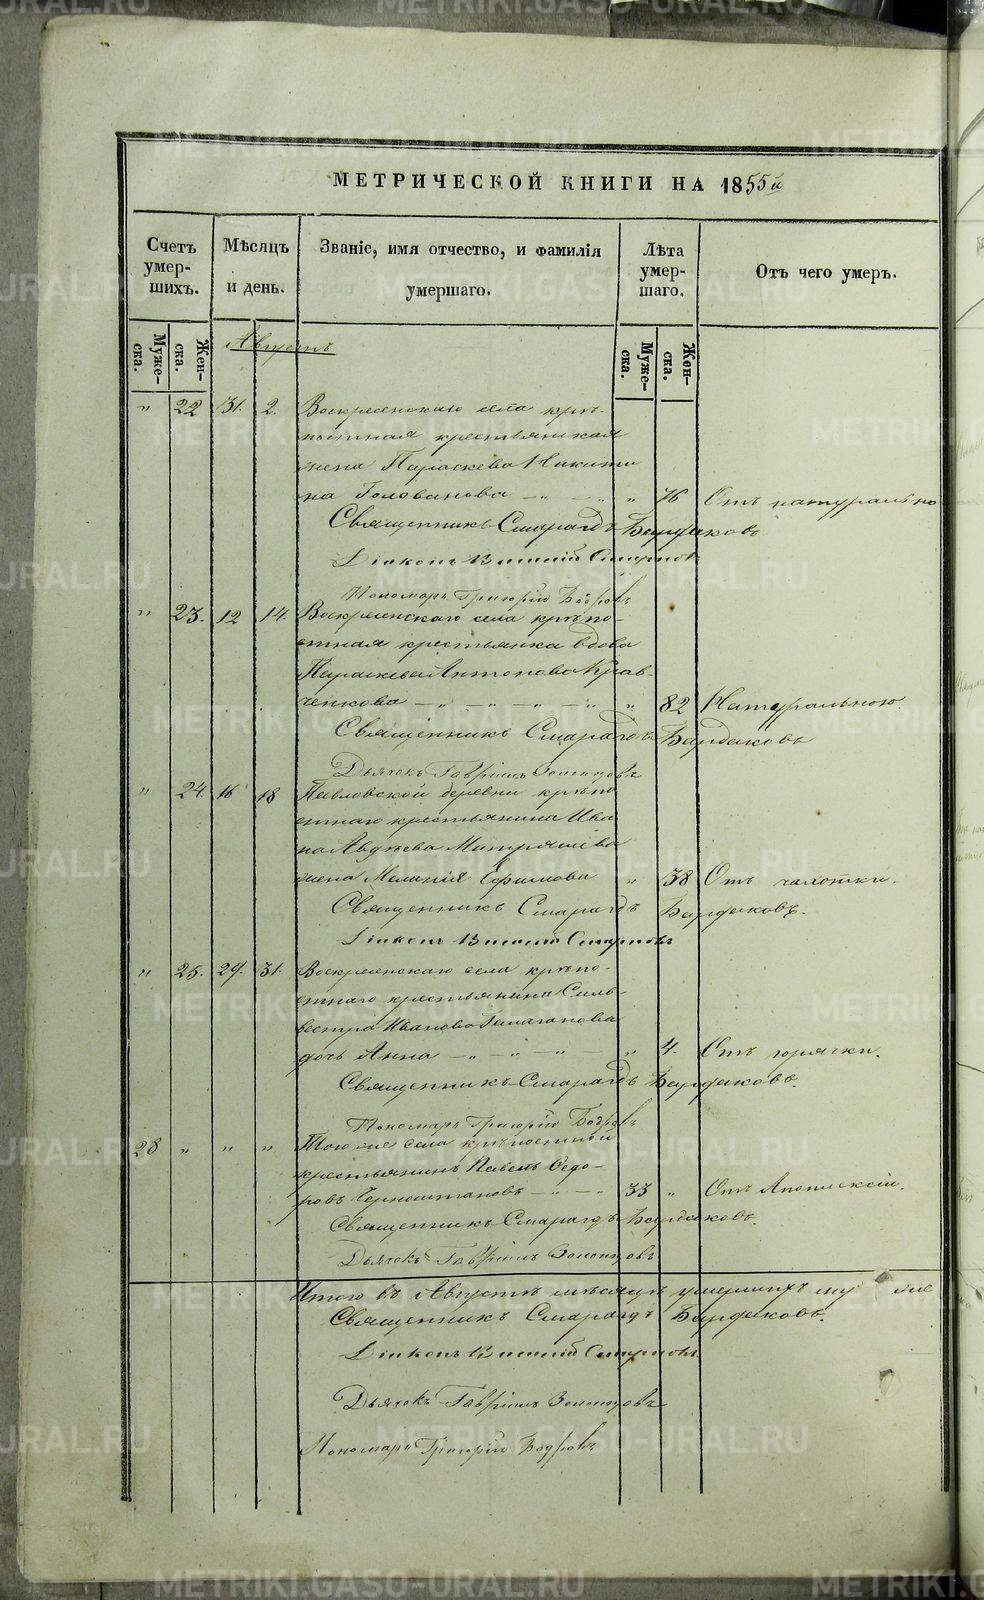 МЕТРИЧЕСКОЙ КНИГИ НА 1855й
Счетъ умер-шихъ.
Мѣсяцъ и день.
Званіе, имя отчество, и фамилія умершаго.
Лѣта умер-шаго.
Отъ чего умеръ.
Муже-ска.
Жен-ска.
Муже-ска.
Жен-ска.
Августъ
" 22 31. 2. Воскресенскаго села крѣ-
постная крестьянская
жена Параскева Никити
на Голованова — " — " " 76 Отъ натурально
Священникъ Смарагдъ Бардаковъ
Діаконъ Смирновъ
Пономарь Григорій Бодровъ
" 23. 12 14. Воскресенскаго села крѣпо-
стная крестьянка вдова
Параскева Антонова Крав-
ченкова — " — " — " — " — " 82 Натуральною
Священникъ Смарагдъ Бардаковъ
Дьячокъ Гавріилъ Золотовъ
" 24. 16 18 Павловской деревни крѣпо
стнаго крестьянина Ива
на Авдѣева Митряшева
жена Меланія Ефимова " 38 Отъ чахотки.
Священникъ Смарагдъ Бардаковъ.
Діаконъ Смирновъ
" 25. 29. 31. Воскресенскаго села крѣпо-
стнаго крестьянина Силь-
вестра Иванова
дочь Анна — " — " — " — " 4. Отъ горячки.
Священникъ Смарагдъ Бардаковъ.
Пономарь Григорій Бодровъ
28 " " " Того же села крѣпостный
крестьянинъ Павелъ Ѳедо-
ровъ Черноштановъ — " — " — 33 " Отъ Апоплексіи.
Священникъ Смарагдъ Бардаковъ.
Дьячокъ Гавріилъ Золотовъ
Итого въ Августѣ мѣсяцѣ умершихъ му же
Священникъ Смарагдъ Бардаковъ.
Діаконъ Смирновъ
Дьячокъ Гавріилъ Золотовъ
Пономарь Григорій Бодровъ
METRIKI.GASO-URAL.RU